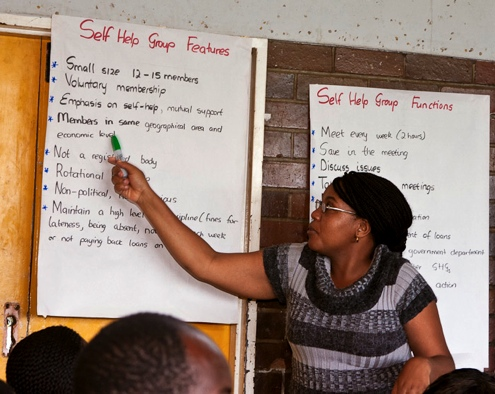 Self Help Group Features
Small size 12-15 members
Voluntary membership
Emphasis on self-help, mutual support
Members in same geographical area and
economic level
Not a body
Rotational
Non-political,
Maintain a high level (fines for
lateness, being absent, week
or not paying back loans on
Self Help Group Functions
Meet every week (2 hours)
Save in the meeting
Discuss issues
meetings
of loans
government department
action